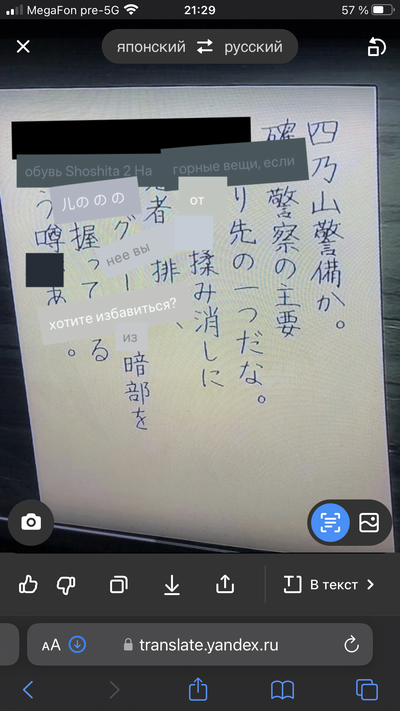 MegaFon pre-5G 21:29 57 %
японский русский
四乃山警備か。
確 警察の主要
り先の一つだな。
揉み消しに
者 排 、
グー 暗部を
握って る
う噂 あ 。
обувь Shoshita 2 На
горные вещи, если
儿の の の
от
нее вы
хотите избавиться?
из
В текст
AA translate.yandex.ru